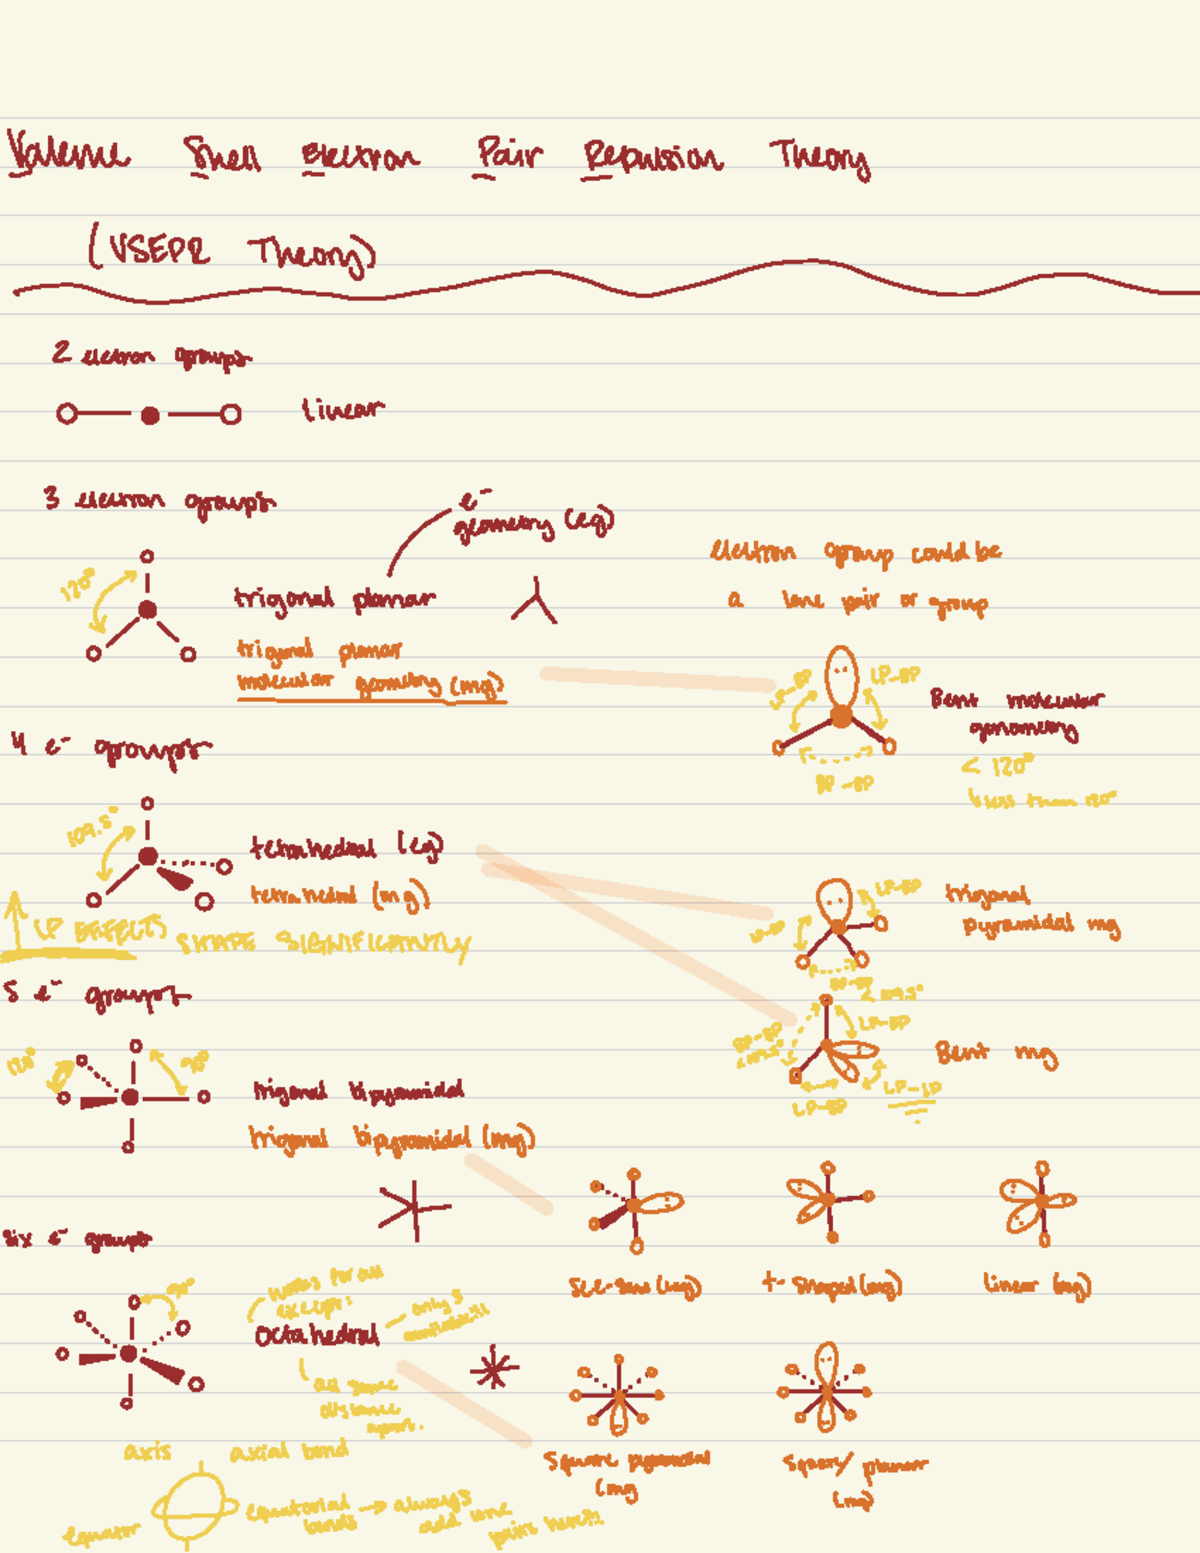 Valence Shell Electron Pair Repulsion Theory
(VSEPR Theory)
2 electron groups
linear
3 electron groups
e⁻
geometry (eg)
120°
trigonal planar
trigonal planar
molecular geometry (mg)
electron group could be
a lone pair or group
LP-BP
LP-BP
BP-BP
Bent molecular
geometry
< 120°
less than 120°
4 e⁻ groups
109.5°
tetrahedral (eg)
tetrahedral (mg)
LP EFFECTS SHAPE SIGNIFICANTLY
LP-BP
LP-BP
BP-BP
< 109.5°
trigonal
pyramidal mg
BP-BP
LP-BP
LP-BP
LP-LP
Bent mg
5 e⁻ groups
120°
90°
trigonal bipyramidal
trigonal bipyramidal (mg)
see-saw (mg)
t-shaped (mg)
linear (mg)
six e⁻ groups
90°
works for all
except:
octahedral
only 3
available
all same
distance
apart.
square pyramidal
(mg
square/ planar
(mg)
axis
axial bond
equator
equatorial → always
bonds
add lone
pairs here